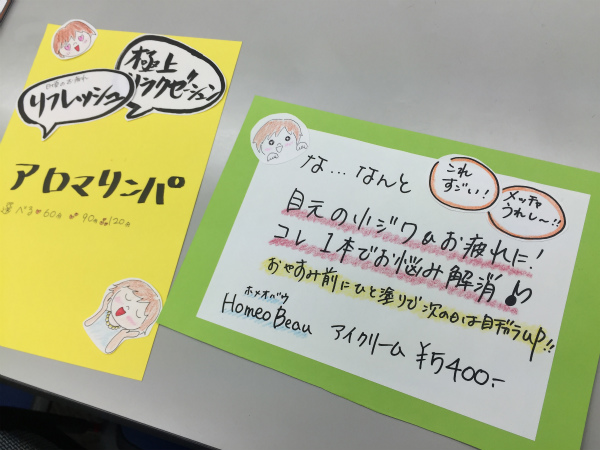 極上
リラクゼーション
リフレッシュ
アロマリンパ
選べる♥60分 90分 120分
な…なんと
これ
すごい!
メッチャ
うれし〜!!
目元の小ジワ&お疲れに!
コレ1本でお悼み解消♪
おやすみ前にひと塗りで次の日は目ヂカラup!!
ホメオバウ
HomeoBeau アイクリーム ¥5400-